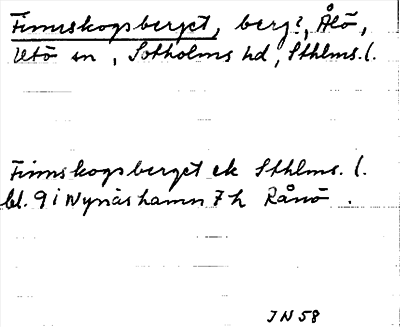 Finnskogsberget, berg?, Ålö,
Utö sn, Sotholms hd, Sthlms. l.
Finnskogsberget ek Sthlms. l.
bl. 9 i Nynäshamn 7 h Rånö.
JN 58